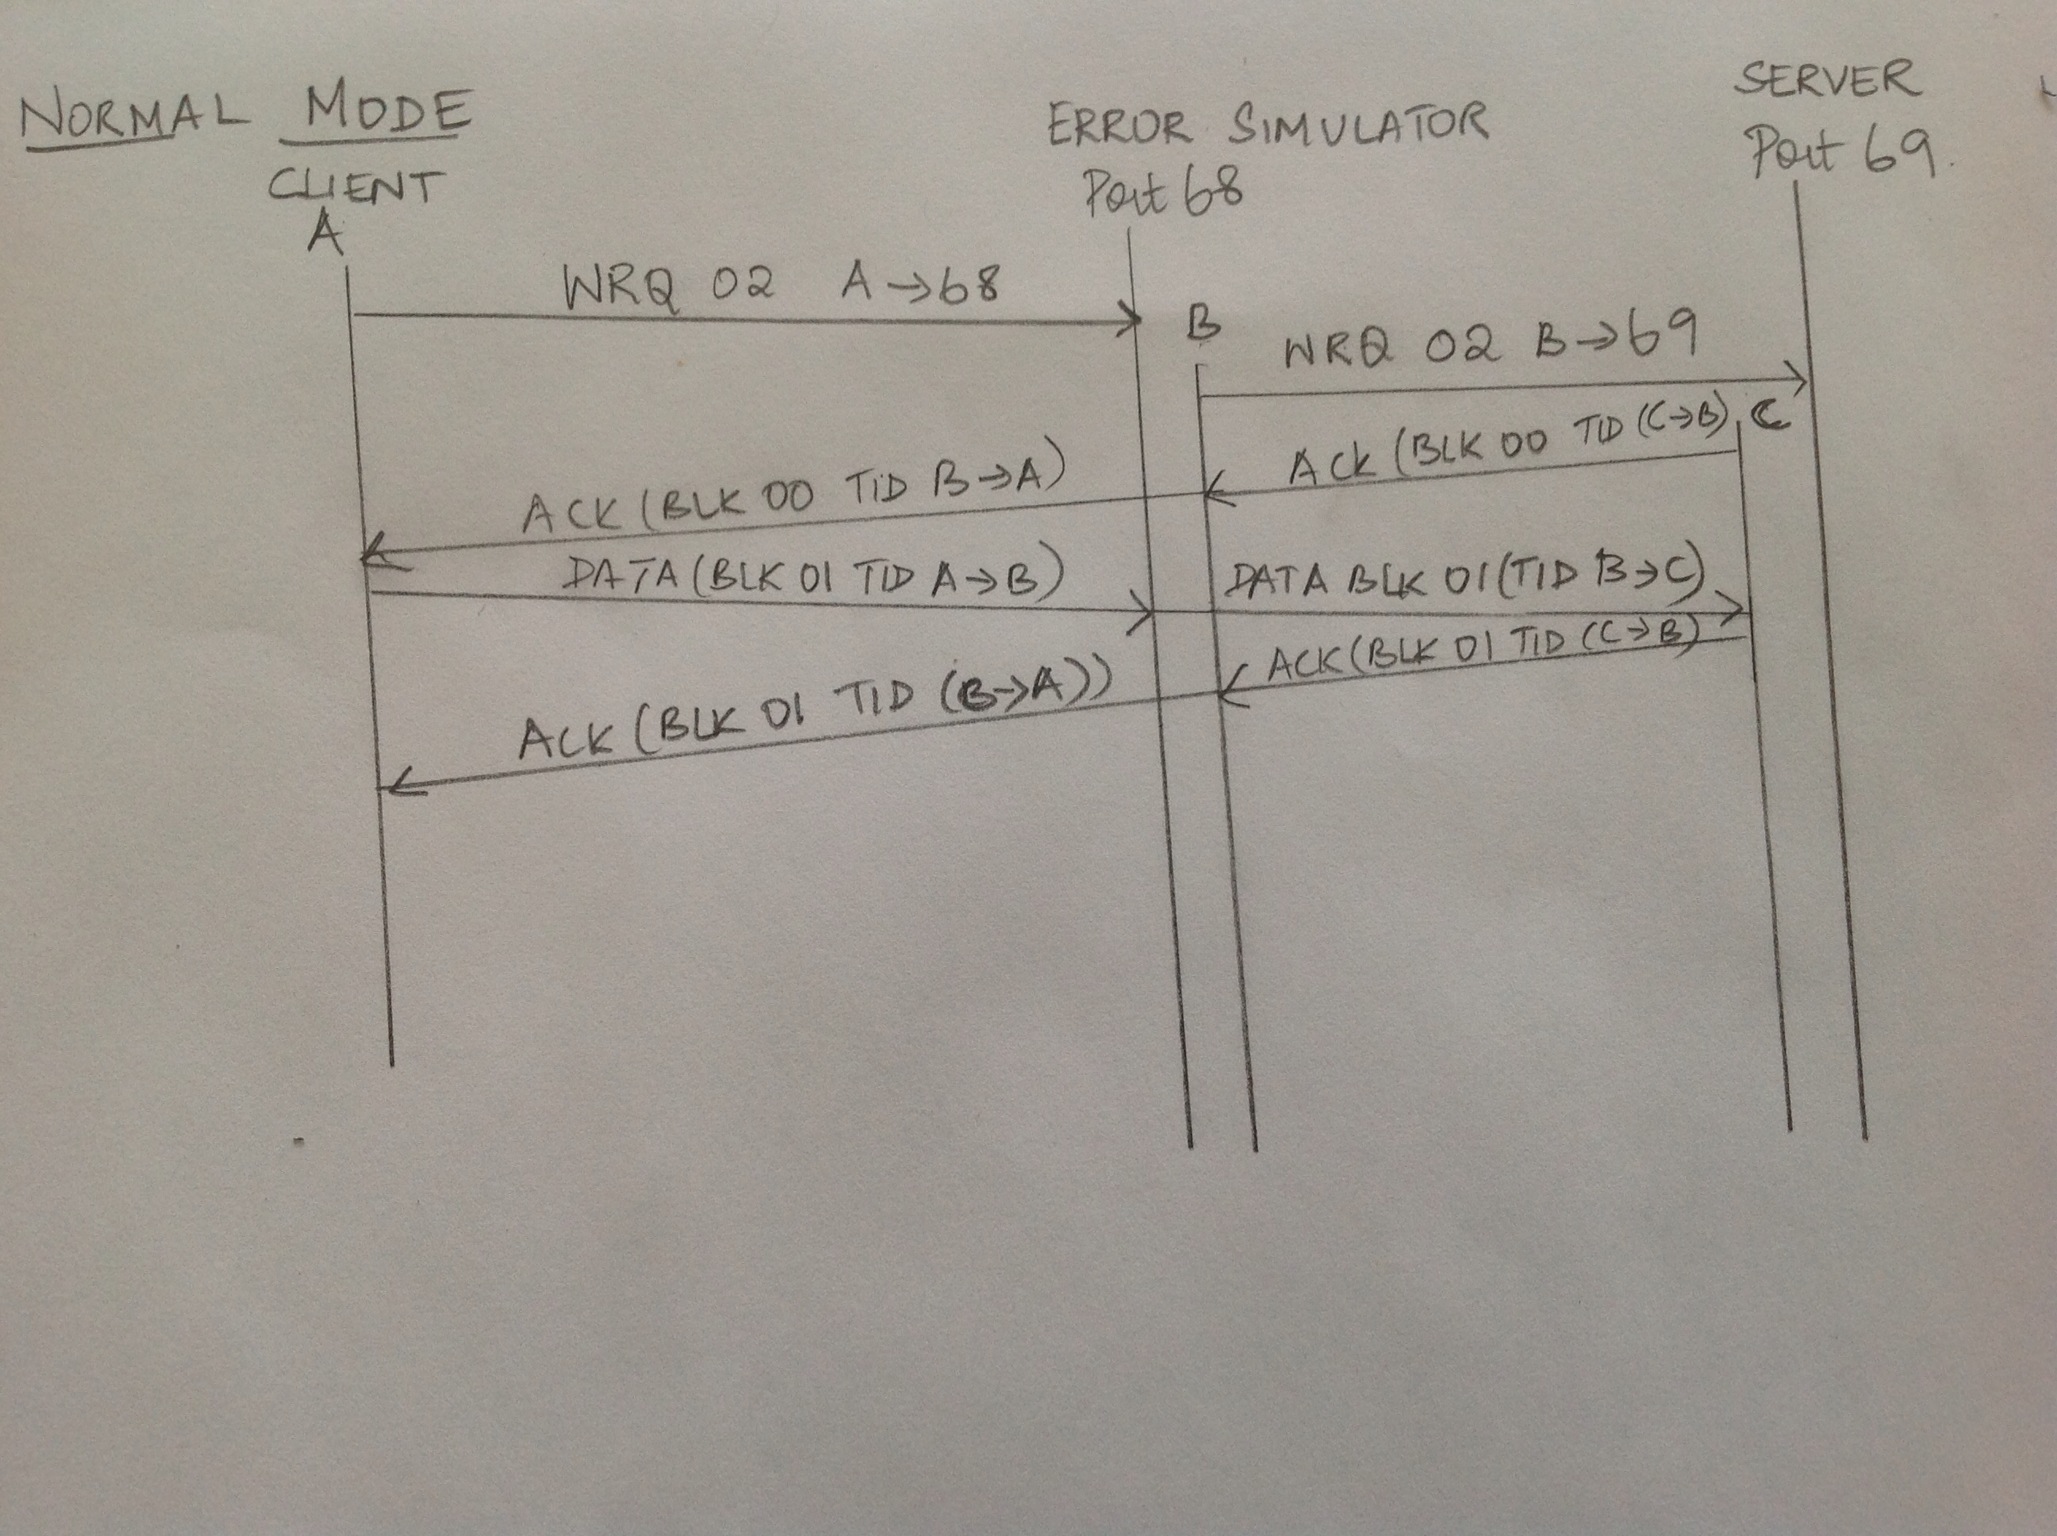 NORMAL MODE
CLIENT
A
ERROR SIMULATOR
Port 68
SERVER
Port 69.
WRQ 02 A→68
B
WRQ 02 B→69
ACK (BLK 00 TID (C→B)
C
ACK (BLK 00 TID B→A)
DATA (BLK 01 TID A→B)
DATA BLK 01 (TID B→C)
ACK (BLK 01 TID (C→B)
ACK (BLK 01 TID (B→A))